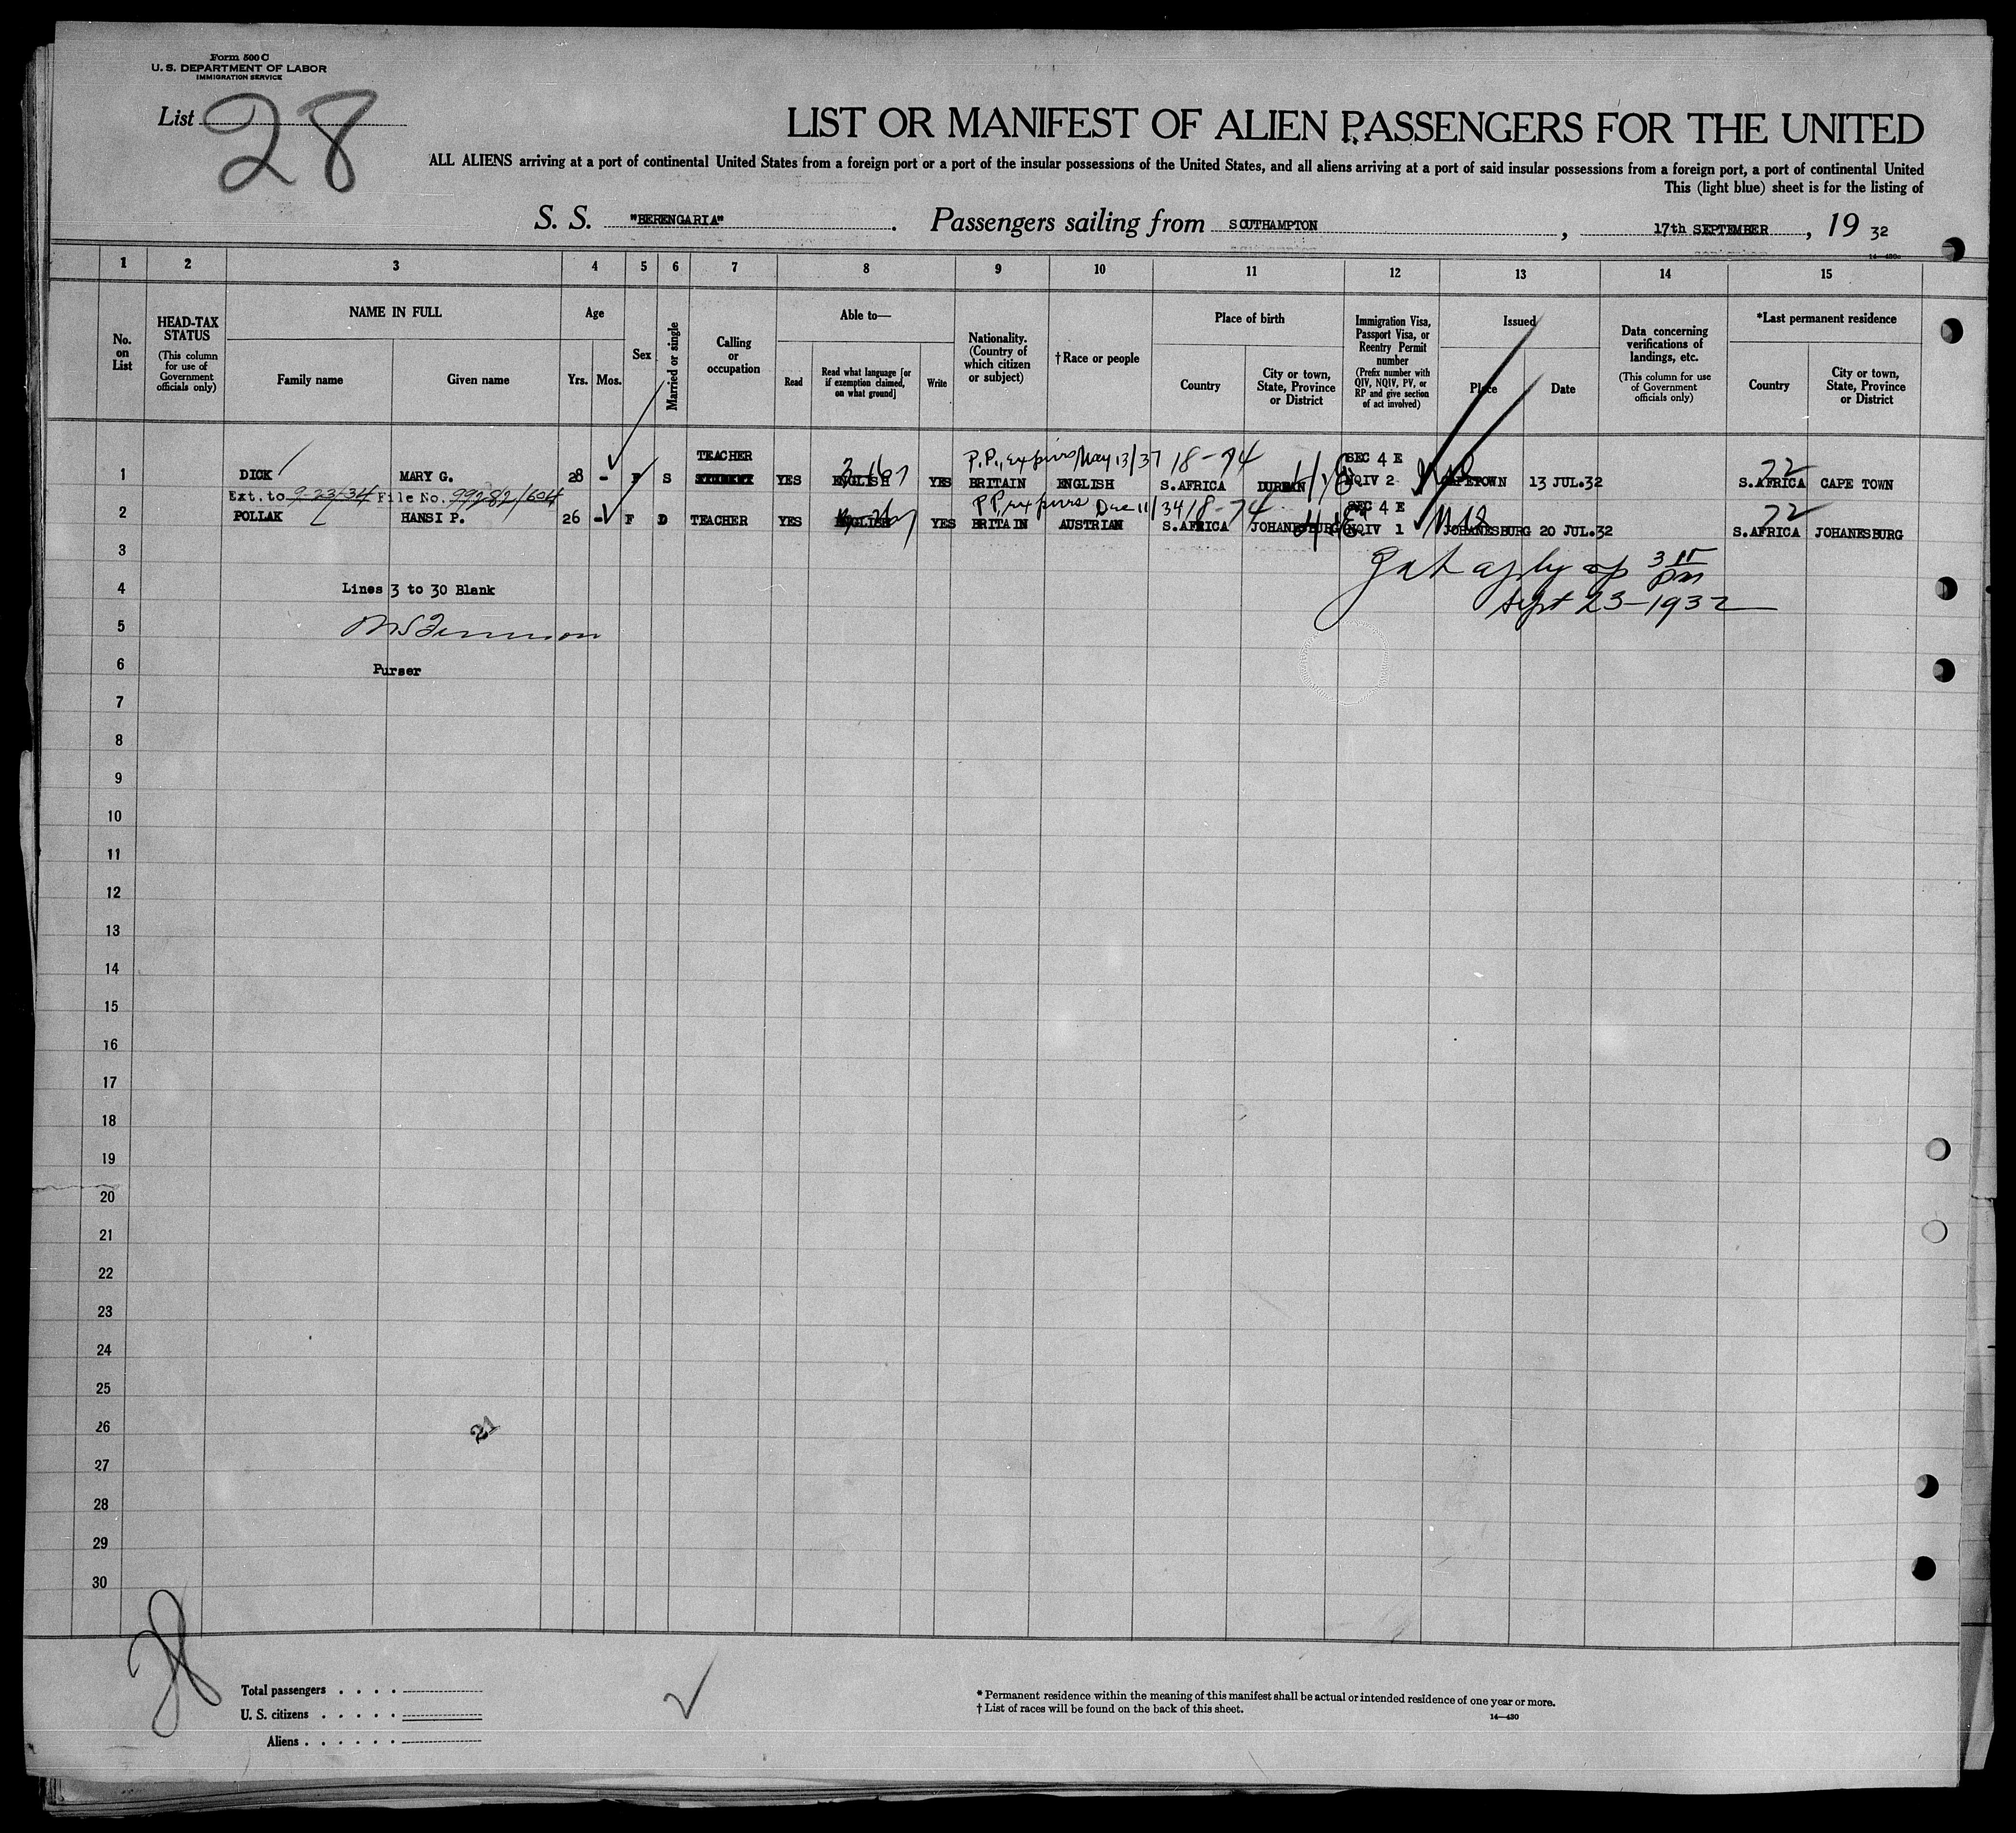 Form 500 C
U. S. DEPARTMENT OF LABOR
IMMIGRATION SERVICE
List 28
LIST OR MANIFEST OF ALIEN PASSENGERS FOR THE UNITED
ALL ALIENS arriving at a port of continental United States from a foreign port or a port of the insular possessions of the United States, and all aliens arriving at a port of said insular possessions from a foreign port, a port of continental United
This (light blue) sheet is for the listing of
S. S. "BERENGARIA". Passengers sailing from SOUTHAMPTON, 17th SEPTEMBER, 19 32
14—430a
1 2 3 4 5 6 7 8 9 10 11 12 13 14 15
No. on List
HEAD-TAX STATUS (This column for use of Government officials only)
NAME IN FULL
Family name Given name
Age
Yrs. Mos.
Sex
Married or single
Calling or occupation
Able to—
Read Read what language [or if exemption claimed, on what ground] Write
Nationality. (Country of which citizen or subject)
†Race or people
Place of birth
Country City or town, State, Province or District
Immigration Visa, Passport Visa, or Reentry Permit number (Prefix number with QIV, NQIV, PV, or RP and give section of act involved)
Issued
Place Date
Data concerning verifications of landings, etc. (This column for use of Government officials only)
*Last permanent residence
Country City or town, State, Province or District
TEACHER P.P., expires May 13/37 18-74 SEC 4 E 72
1 DICK MARY G. 28 - F S STUDENT YES ENGLISH YES BRITAIN ENGLISH S.AFRICA DURBAN NQIV 2 CAPETOWN 13 JUL.32 S.AFRICA CAPE TOWN
Ext. to 9-23/34 File No. 99282/604 P.P, expires Dec 11/34 18-74 SEC 4 E 72
2 POLLAK HANSI P. 26 - F D TEACHER YES ENGLISH YES BRITAIN AUSTRIAN S.AFRICA JOHANESBURG NQIV 1 JOHANESBURG 20 JUL.32 S.AFRICA JOHANESBURG
3
4 Lines 3 to 30 Blank
Sept 23-1932
5
6 Purser
7
8
9
10
11
12
13
14
15
16
17
18
19
20
21
22
23
24
25
26 21
27
28
29
30
28
Total passengers . . . .
U. S. citizens . . . . .
Aliens . . . . . .
* Permanent residence within the meaning of this manifest shall be actual or intended residence of one year or more.
† List of races will be found on the back of this sheet.
14—430